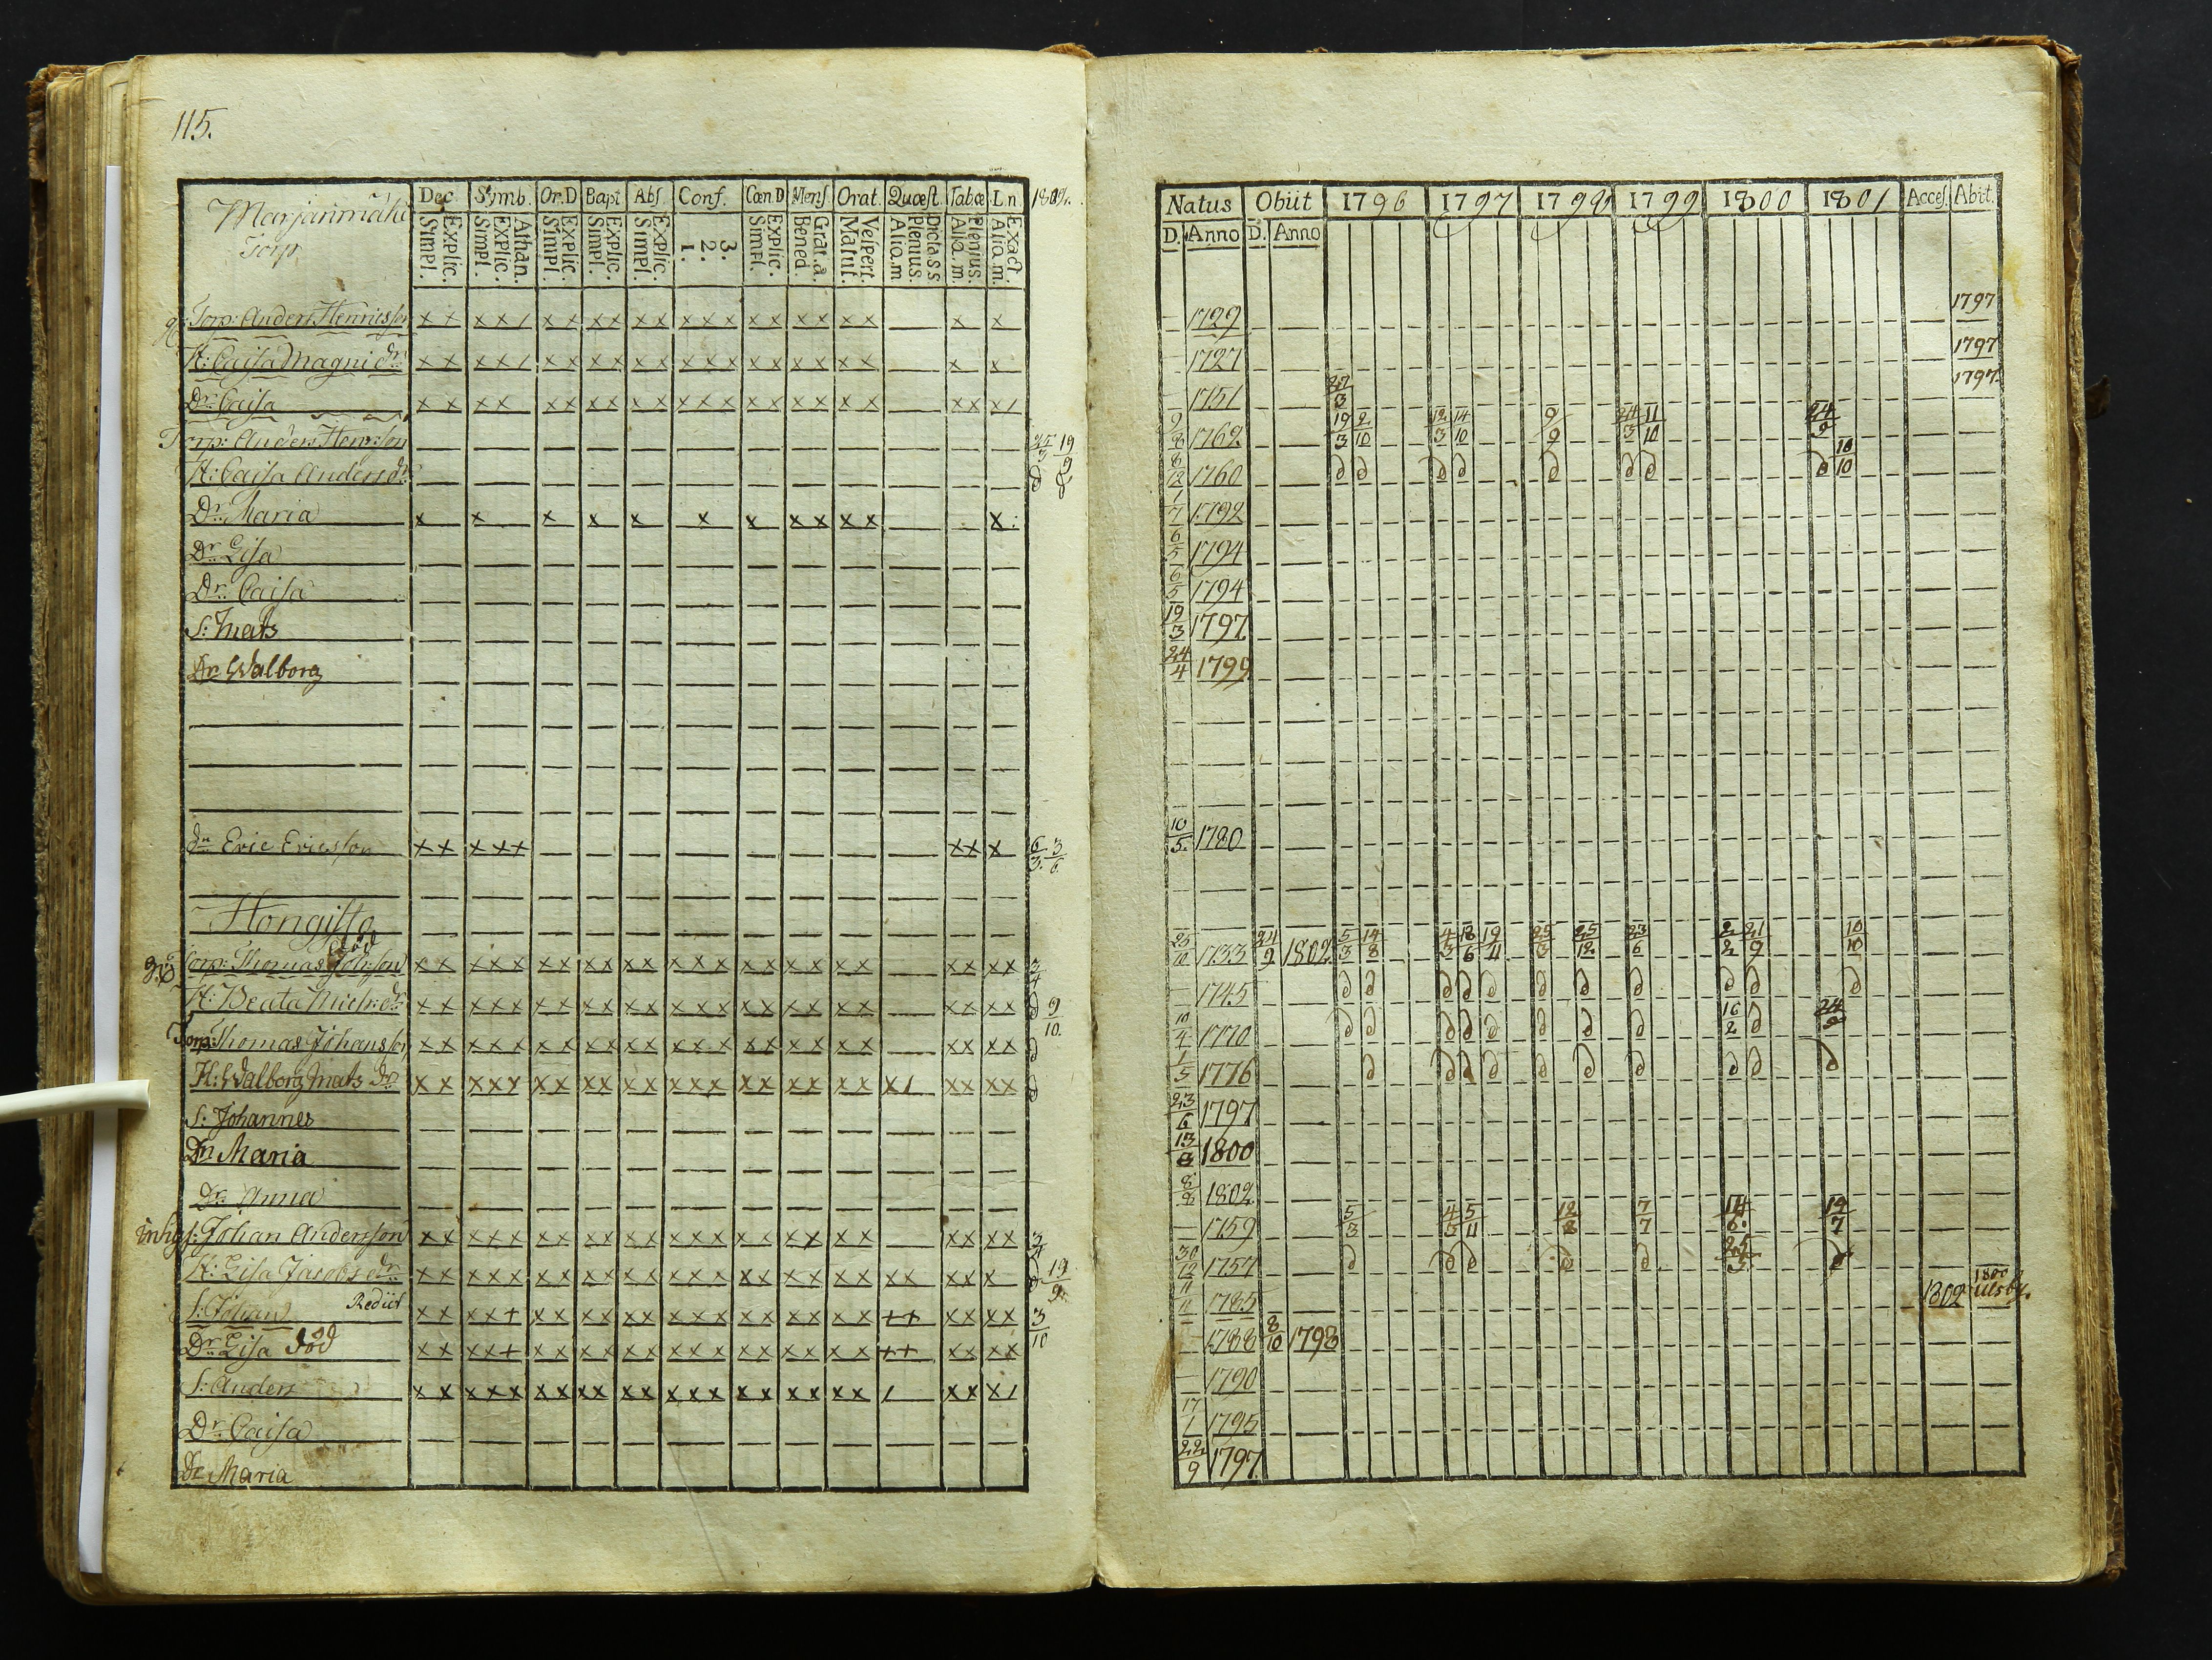 115.
Marjanmäki
Torp
Dec Symb. Or.D Bapt Abs Conf. Cœn.D Mens Orat. Quæst. Tabæ L.n. 1802.
Explic. Simpl. Athan. Explic. Simpl. Explic. Simpl. Explic. Simpl. Explic. Simpl. 3. 2. 1. Explic. Simpl. Grat.a. Bened. Vespert. Matut. Dicta.s.s Plenius. Aliq.m. Plenius. Aliq.m. Exact Aliq.m.
Natus Obiit 1796 1797 1798 1799 1800 1801 Acces. Abiit.
D. Anno D. Anno
Torp: Anders Henricsson x x x x / x x x x x x x x x x x x x x x x x 1729 1797
H: Caisa Magni dr x x x x / x x x x x x x x x x x x x x x x x 1727 1797
Dr Caisa x x x x x x x x x x x x x x x x x x x x x x / 1751 27/3 1797
Torp: Anders Henr:son 25/3 19/9 9/8 1762 19/3 2/10 12/3 14/10 9/9 24/3 11/10 24/9
H: Caisa Anders dr d d 8/12 1760 d d d d d d d d 10/10
Dr Maria x x x x x x x x x x x x 1/7 1792
Dr Lisa 6/5 1794
Dr Caisa 6/5 1794
S: Mats 19/3 1797
Dr Walborg 24/4 1799
dr Eric Ericsson x x x x x x x x 6/3 3/6 10/5 1780
Hongisto
Torp: Thomas Joh:son död x x x x x x x x x x x x x x x x x x x x x x x 3/4 25/10 1733 24/9 1802 5/3 14/8 4/3 18/6 19/11 25/3 25/12 23/6 2/2 21/9 10/10
H: Beata Mich: dr x x x x x x x x x x x x x x x x x x x x x x x d 9/10 1745 d d d d d d d d d d d
Torp: Thomas Johansson x x x x x x x x x x x x x x x x x x x x x x x d 10/4 1770 d d d d d d d d 16/2 d
H: Walborg Mats dr x x x x x x x x x x x x x x x x x x x x / x x x x d 1/5 1776 d d d d d d d d d d
S: Johannes 23/6 1797
Dr Maria 1800
Dr Anna 8/8 1802
Inhys: Johan Andersson x x x x x x x x x x x x x x x x x x x x x x x 3/4 1759 5/3 4/3 5/11 12/8 7/7 14/6 14/7
H: Lisa Jacobs dr x x x x x x x x x x x x x x x x x x x x x x x x d 19/9 30/12 1757 d d d d d 25/3 d
S: Johan Rediit x x x x + x x x x x x x x x x x x x x x + + x x x x 3/10 11/11 1785 1802 1800 Ulsby.
Dr Lisa död x x x x + x x x x x x x x x x x x x x x + + x x x x 1788 8/10 1798
S: Anders x x x x x x x x x x x x x x x x x x x x / x x x / 1790
Dr Caisa 17/1 1795
Dr Maria 22/9 1797